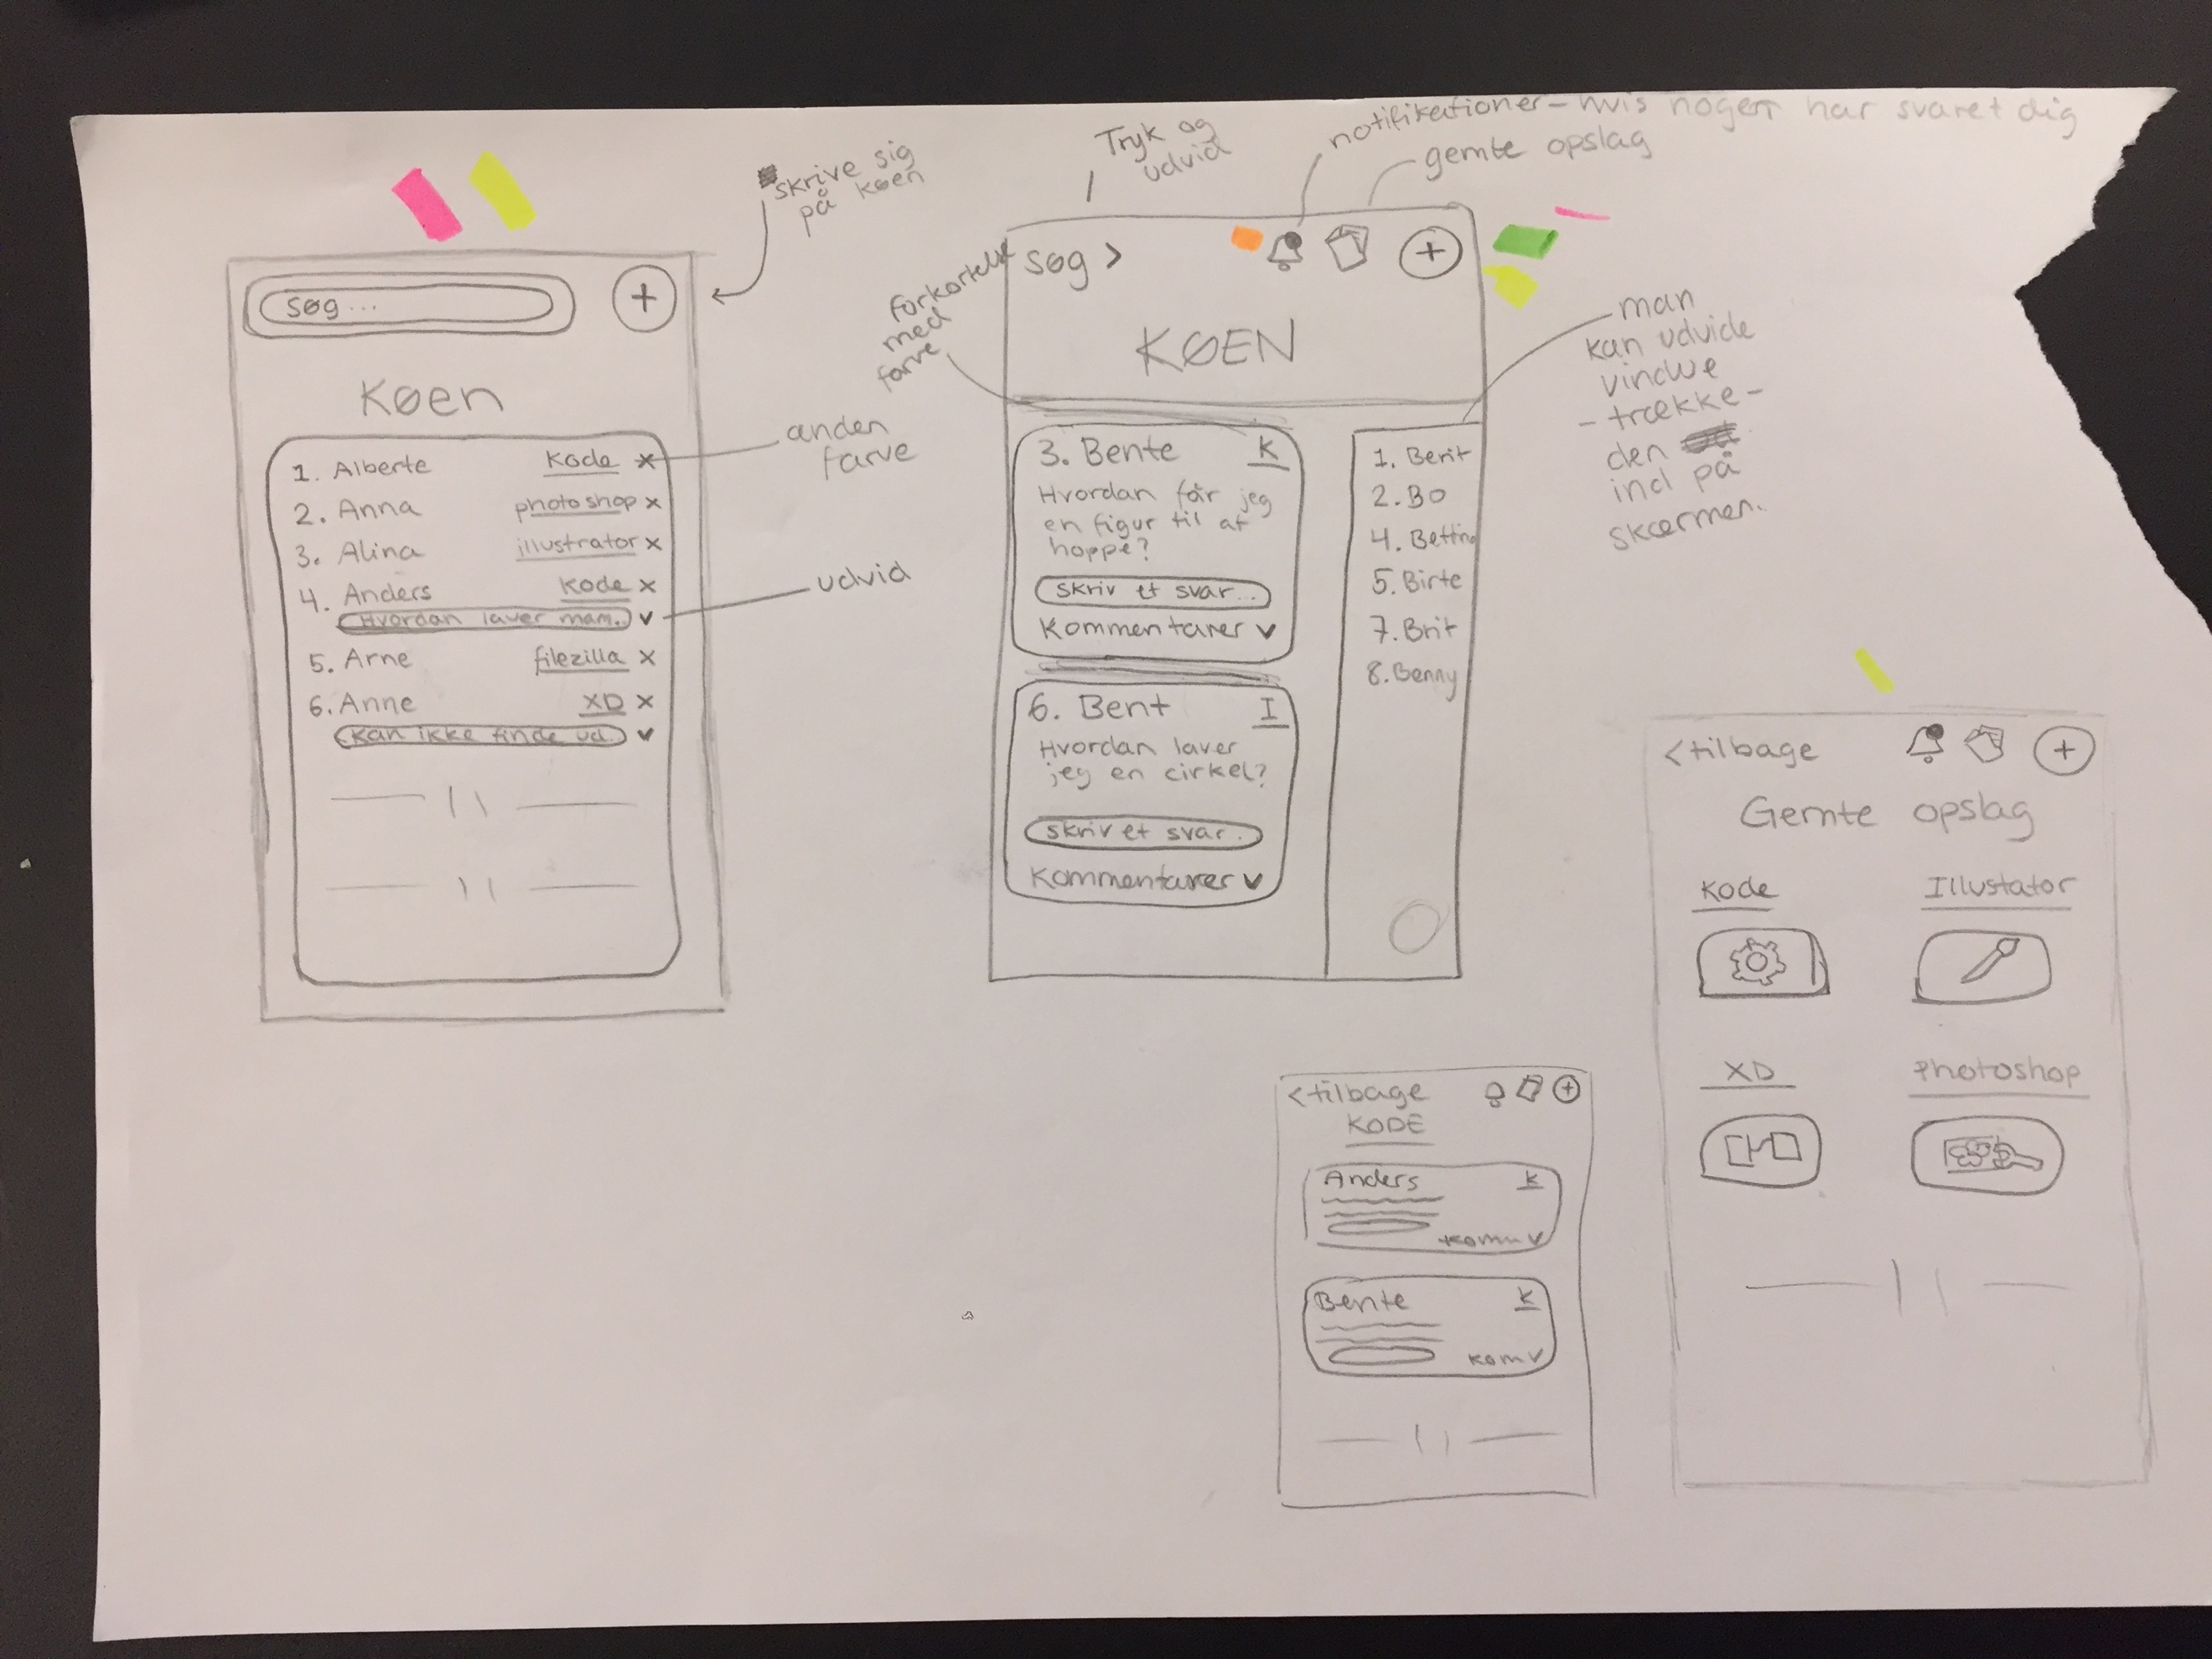 skrive sig
på køen
søg...
+
Køen
1. Alberte Kode x
2. Anna photoshop x
3. Alina illustrator x
4. Anders Kode x
Hvordan laver man.. v
5. Arne filezilla x
6. Anne XD x
Kan ikke finde ud. v
anden
farve
udvid
Tryk og
udvid
notifikationer - hvis nogen har svaret dig
gemte opslag
forkortelse
med
farve
søg >
+
KØEN
3. Bente K
Hvordan får jeg
en figur til at
hoppe?
skriv et svar...
Kommentarer v
6. Bent I
Hvordan laver
jeg en cirkel?
skriv et svar..
Kommentarer v
1. Berit
2. Bo
4. Bettina
5. Birte
7. Brit
8. Benny
man
kan udvide
vindue
- trække -
den
ind på
skærmen.
<tilbage +
Gemte opslag
Kode Illustator
XD Photoshop
<tilbage +
KODE
Anders K
komm v
Bente K
kom v